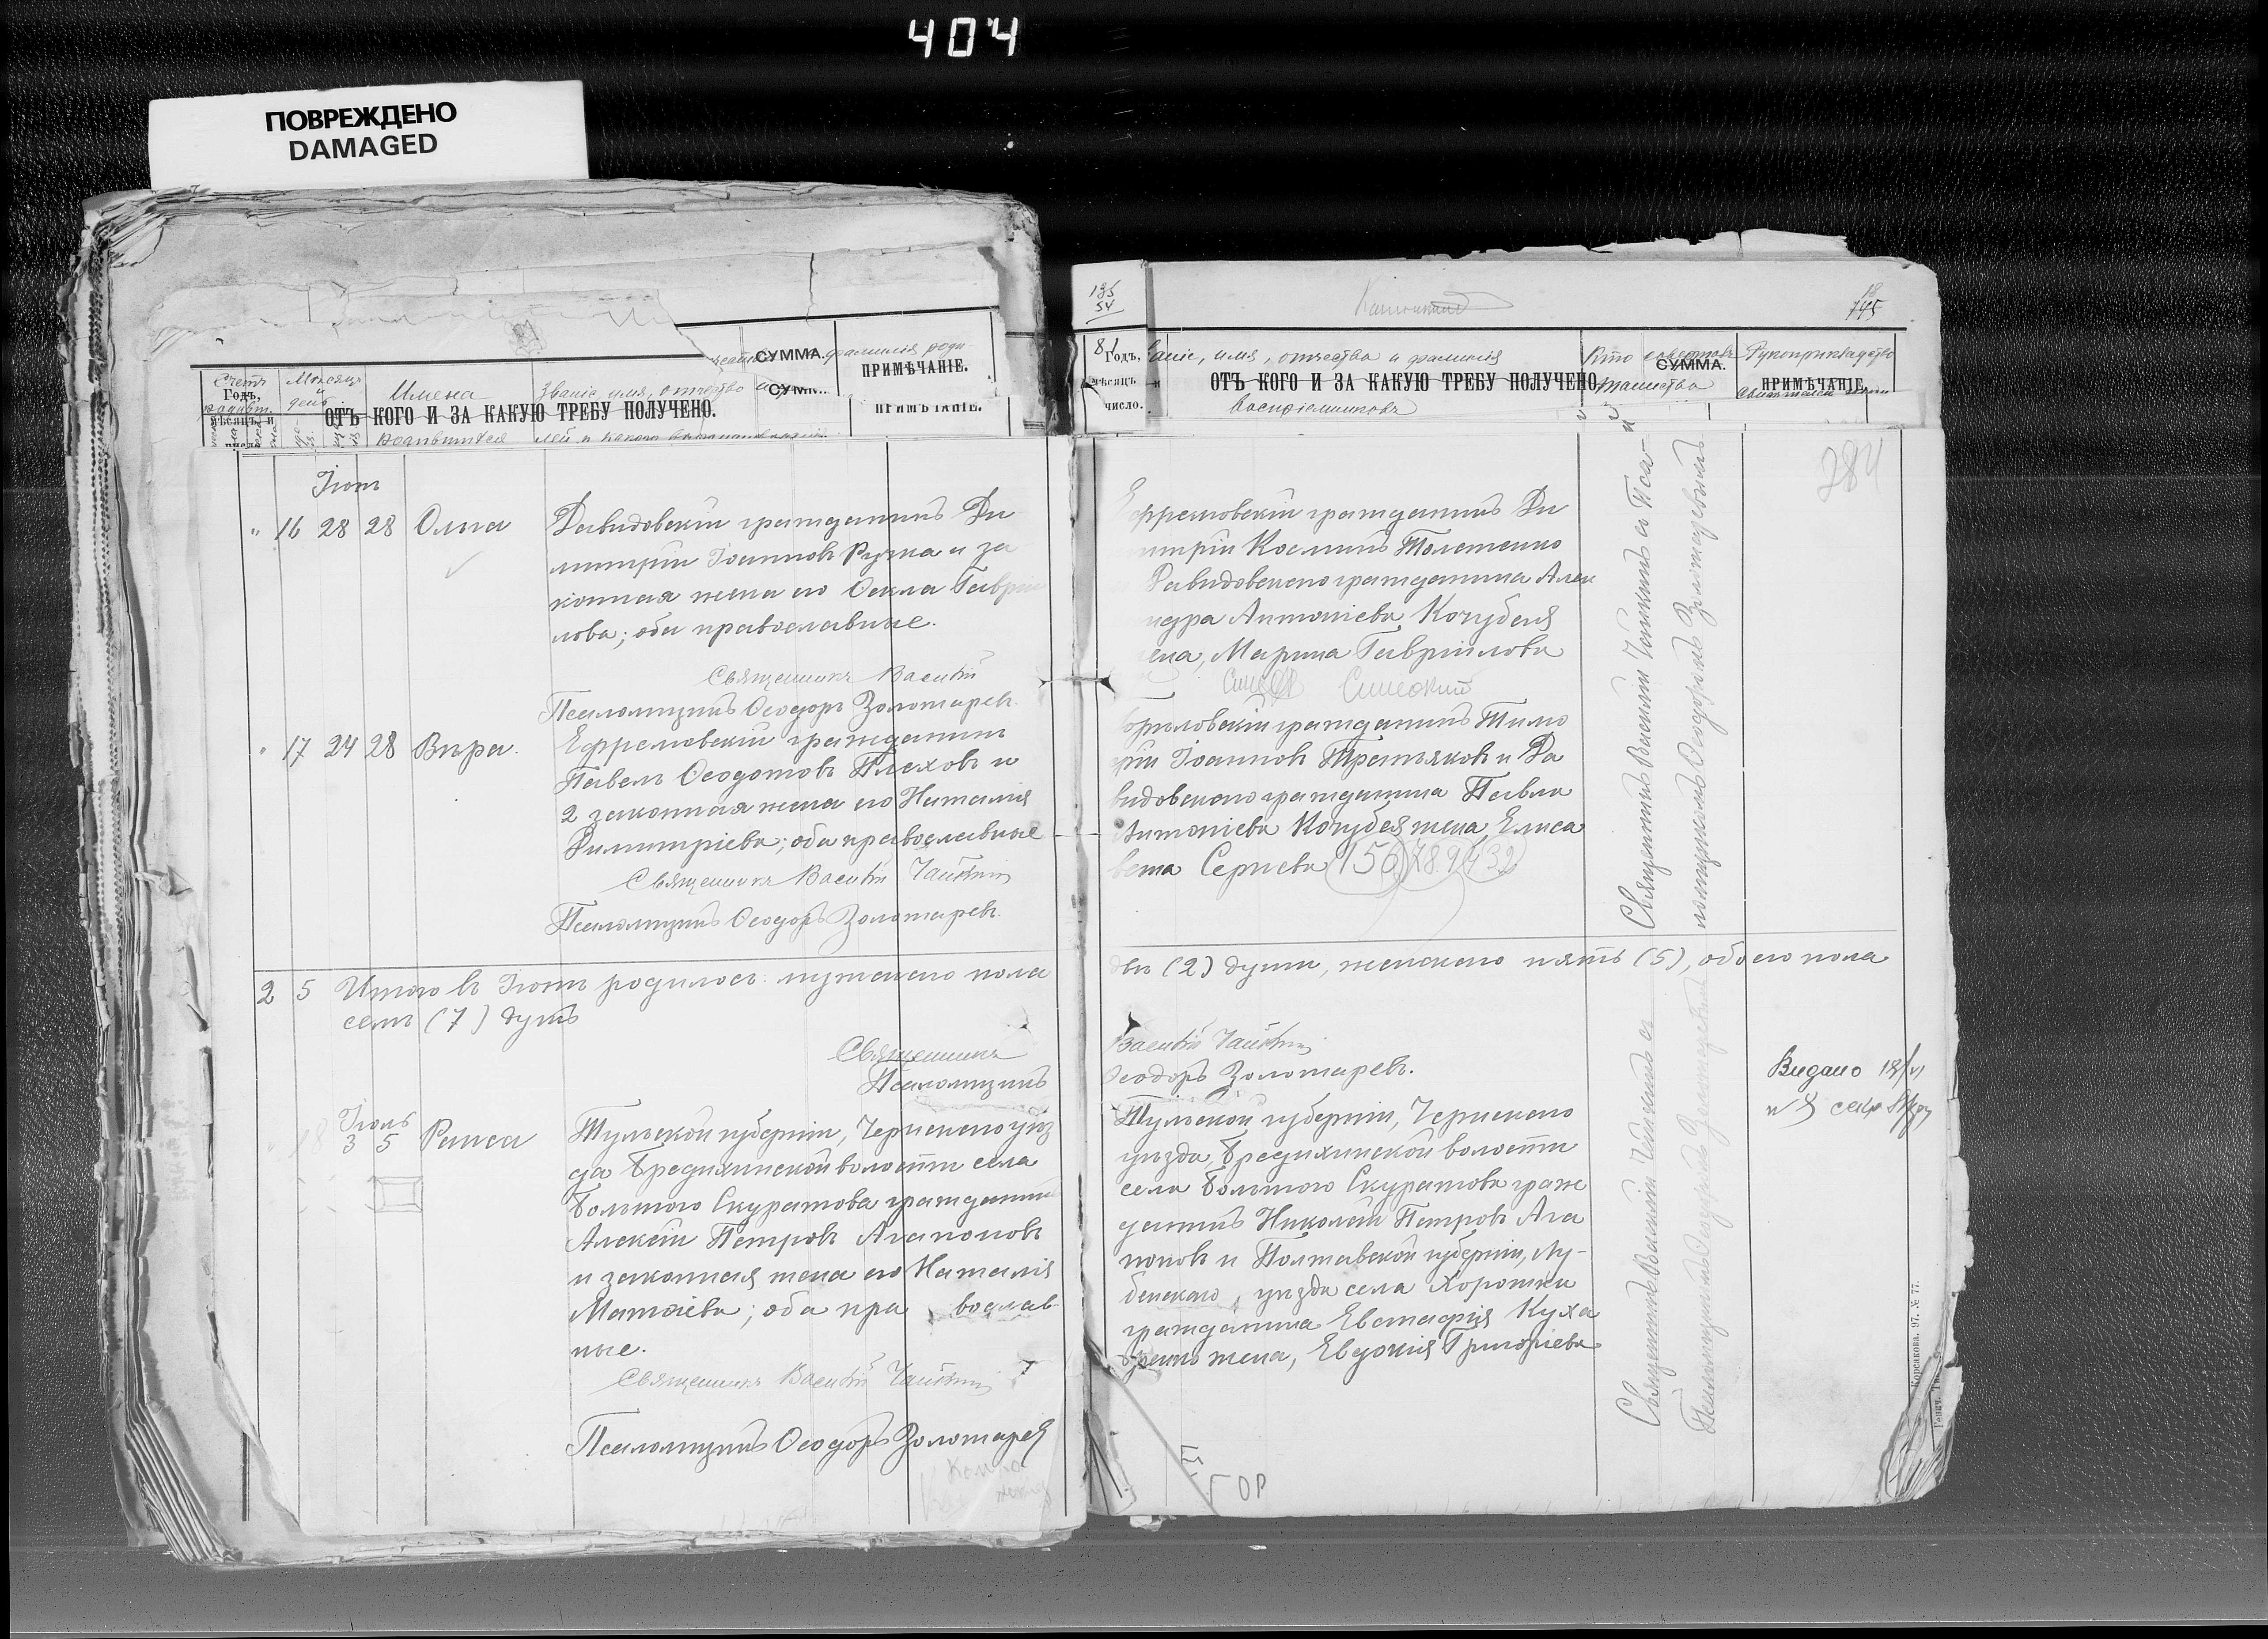 404
ПОВРЕЖДЕНО
DAMAGED
СУММА. фамилія роди
ПРИМѢЧАНІЕ.
Счетъ
Годъ,
мѣсяцъ и
Мѣсяцъ
и
день
Имена
Званіе имя, отчество и
СУММ
ОТЪ КОГО И ЗА КАКУЮ ТРЕБУ ПОЛУЧЕНО.
лей и какого
Іюнь
" 16 28 28 Ольга
Давидовскій гражданинъ Ди
митрій Іоанновъ Ручка и за
конная жена его Ѳекла Гаврі
лова; оба православные.
Священникъ Василій
Псаломщикъ Ѳеодоръ Золотаревъ.
" 17 24 28 Вѣра.
Ефремовскій гражданинъ
Павелъ Ѳеодотовъ Плеховъ и
2 законная жена его Наталія
Димитріева; оба православные
Священникъ Василій Чайкинъ
Псаломщикъ Ѳеодоръ Золотаревъ.
2 5 Итого въ Іюнѣ родилось: мужескаго пола
семь (7) душъ
Священникъ
Псаломщикъ
Іюль
18 3 5 Раиса
Тульской губерніи, Чернскаго уѣз
да Бредихинской волости села
Большого Скуратова гражданинъ
Алексѣй Петровъ Агапоновъ
и законная жена его Наталія
Матѳіева; оба пра вослав
ные.
Священникъ Василій Чайкинъ
Псаломщикъ Ѳеодоръ Золотаревъ
135
54
18
745
81
Годъ,
мѣсяцъ и
число.
званіе, имя, отчества и фамилія
ОТЪ КОГО И ЗА КАКУЮ ТРЕБУ ПОЛУЧЕНО.
воспріемниковъ
Кто совершалъ
СУММА.
таинства
Рукоприкладство
ПРИМѢЧАНІЕ.
284
Ефремовскій гражданинъ Ди
митрій Косминъ Толстенко
Давидовскаго гражданина Алек
сандра Антоніева Кочубея
жена, Марина Гавріилова
Синский
гражданинъ Тимо
ѳей Іоанновъ Третьяковъ и Да
видовскаго гражданина Павла
Антоніева Кочубея жена, Елиса
вета Сергіева 156 789 432
Священникъ Василій Чайкинъ и Пса-
ломщикомъ Ѳеодоромъ Золотаревымъ
двѣ (2) души, женскаго пять (5), обоего пола
Василій Чайкинъ
Ѳеодоръ Золотаревъ.
Тульской губерніи, Чернскаго
уѣзда, Бредихинской волости
села Большого Скуратова граж
данинъ Николай Петровъ Ага
поновъ и Полтавской губерніи, Лу-
бенскаго, уѣзда села Хорошки
гражданина Евстафія Куха
ренко жена, Евдокія Григоріева
Священникъ Василій Чайкинъ и
Псаломщикъ Ѳеодоръ Золотаревъ
Видано 18/VI
ГОР
Корсакова. 97. № 77.